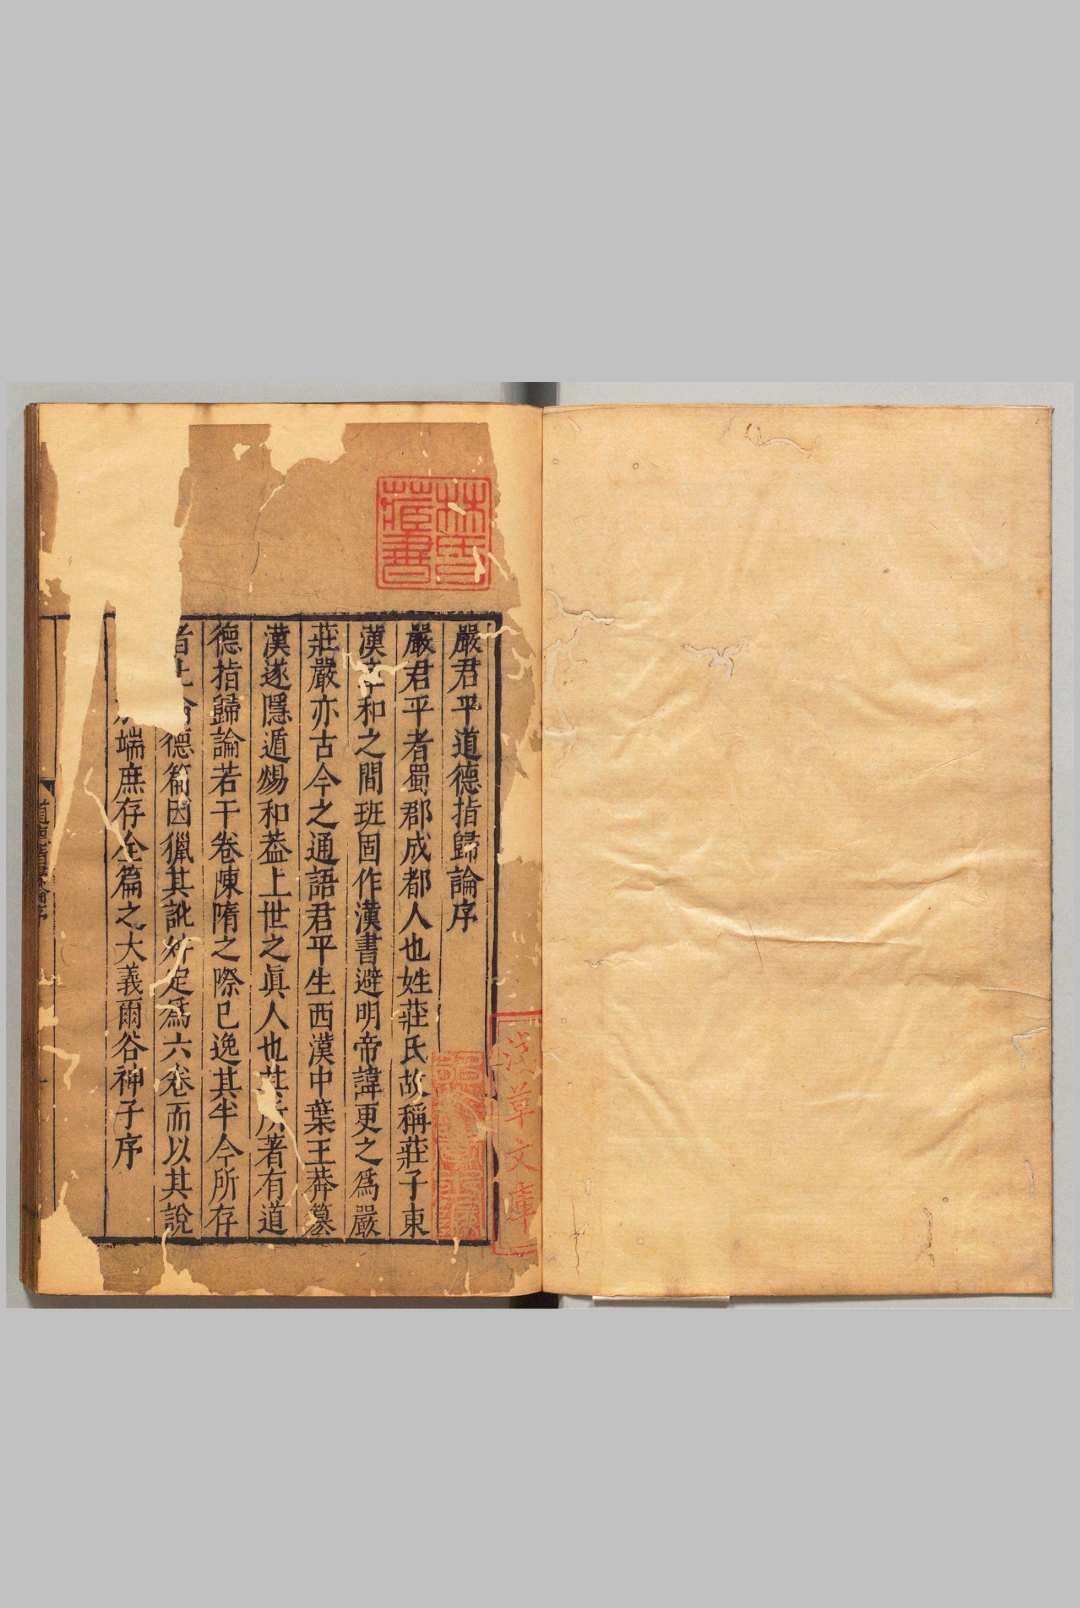 嚴君平道德指歸論序
嚴君平者蜀郡成都人也姓莊氏故稱莊子東
漢章和之間班固作漢書避明帝諱更之爲嚴
莊嚴亦古今之通語君平生西漢中葉王莽篡
漢遂隱遁煬和葢上世之眞人也其所著有道
德指歸論若干卷陳隋之際已逸其半今所存
者止論德篇因獵其訛舛定爲六卷而以其說
端庶存全篇之大義爾谷神子序
道德指歸論序
林氏藏書
淺草文庫